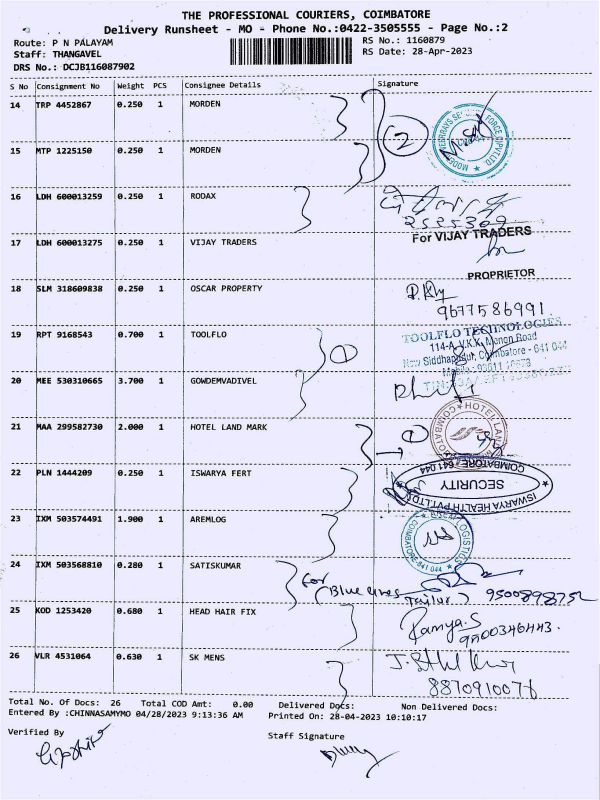 THE PROFESSIONAL COURIERS, COIMBATORE
Delivery Runsheet - MO - Phone No.:0422-3505555 - Page No.:2
Route: P N PALAYAM RS No.: 1160879
Staff: THANGAVEL RS Date: 28-Apr-2023
DRS No.: DCJB116087902
S No Consignment No Weight PCS Consignee Details Signature
14 TRP 4452867 0.250 1 MORDEN
2
15 MTP 1225150 0.250 1 MORDEN
16 LDH 600013259 0.250 1 RODAX
2525309
17 LDH 600013275 0.250 1 VIJAY TRADERS For VIJAY TRADERS
PROPRIETOR
18 SLM 318609838 0.250 1 OSCAR PROPERTY
9677586991
19 RPT 9168543 0.700 1 TOOLFLO 1 TOOLFLO TECHNOLOGIES
114-A, V.K.K. Menon Road
New Siddhapudur, Coimbatore - 641 044
20 MEE 530310665 3.700 1 GOWDEMVADIVEL
21 MAA 299582730 2.000 1 HOTEL LAND MARK 1 HOTEL LAND
22 PLN 1444209 0.250 1 ISWARYA FERT COIMBATORE - 641 044
SECURITY
ISWARYA HEALTH PVT.LTD
23 IXM 503574491 1.900 1 AREMLOG LOGISTICS
COIMBATORE-641 044
24 IXM 503568810 0.280 1 SATISKUMAR for
(Blue Lines Tailor) 9500898752
25 KOD 1253420 0.680 1 HEAD HAIR FIX Ramya.S
9500346443.
26 VLR 4531064 0.630 1 SK MENS
8870910076
Total No. Of Docs: 26 Total COD Amt: 0.00 Delivered Docs: Non Delivered Docs:
Entered By :CHINNASAMYMO 04/28/2023 9:13:36 AM Printed On: 28-04-2023 10:10:17
Verified By Staff Signature